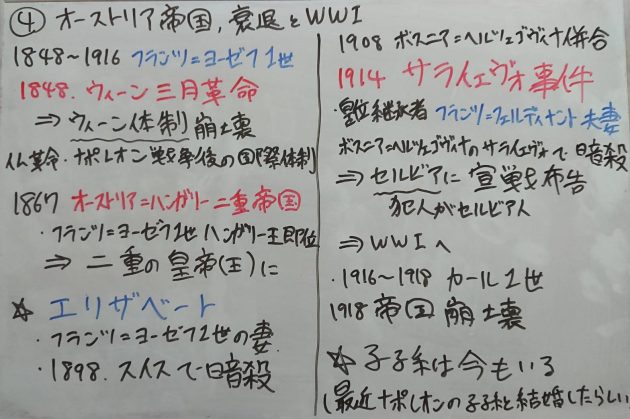 ④ オーストリア帝国，衰退とWWI
1848～1916 フランツ＝ヨーゼフ1世
1848. ウィーン三月革命
⇒ ウィーン体制 崩壊
仏革命・ナポレオン戦争後の国際体制
1867 オーストリア＝ハンガリー二重帝国
・フランツ＝ヨーゼフ1世 ハンガリー王即位
⇒ 二重の皇帝(王)に
☆ エリザベート
・フランツ＝ヨーゼフ1世の妻
・1898. スイスで暗殺
1908 ボスニア＝ヘルツェゴヴィナ併合
1914 サライェヴォ事件
・皇位継承者 フランツ＝フェルディナント夫妻
ボスニア＝ヘルツェゴヴィナのサライェヴォで暗殺
⇒ セルビアに宣戦布告
犯人がセルビア人
⇒ WWIへ
・1916～1918 カール1世
1918 帝国崩壊
☆ 子孫は今もいる
(最近ナポレオンの子孫と結婚したらしい